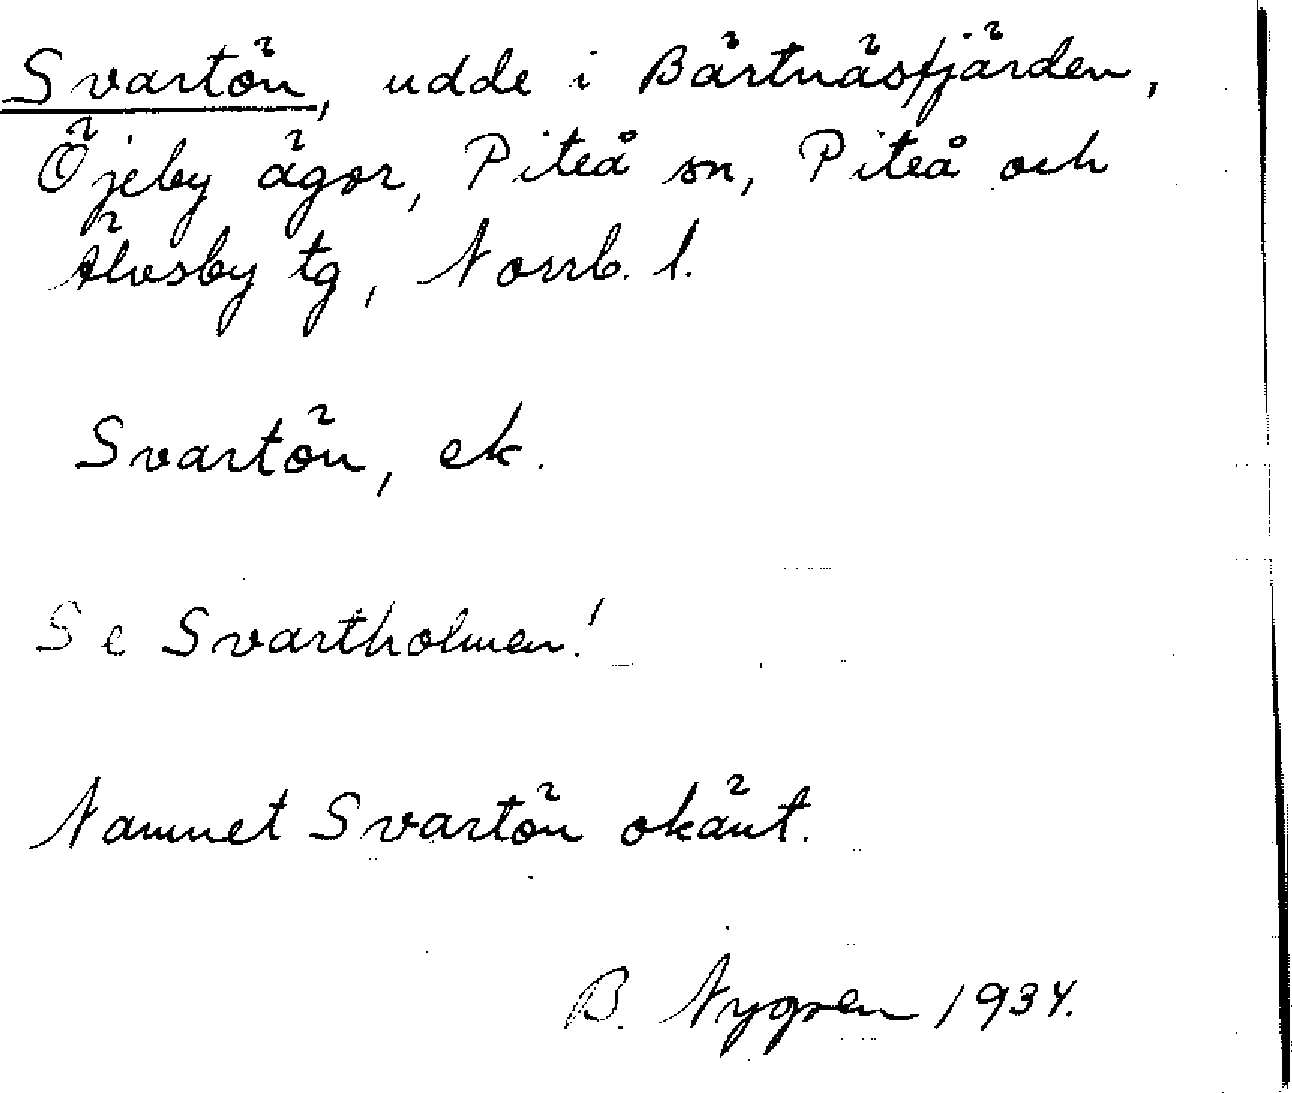 Svartön, udde i Bärtnäsfjärden,
Öjeby ägor, Piteå sn, Piteå och
Älvsby tg, Norrb. l.
Svartön, ek.
Se Svartholmen!
Namnet Svartön okänt.
B. Nygren 1934.